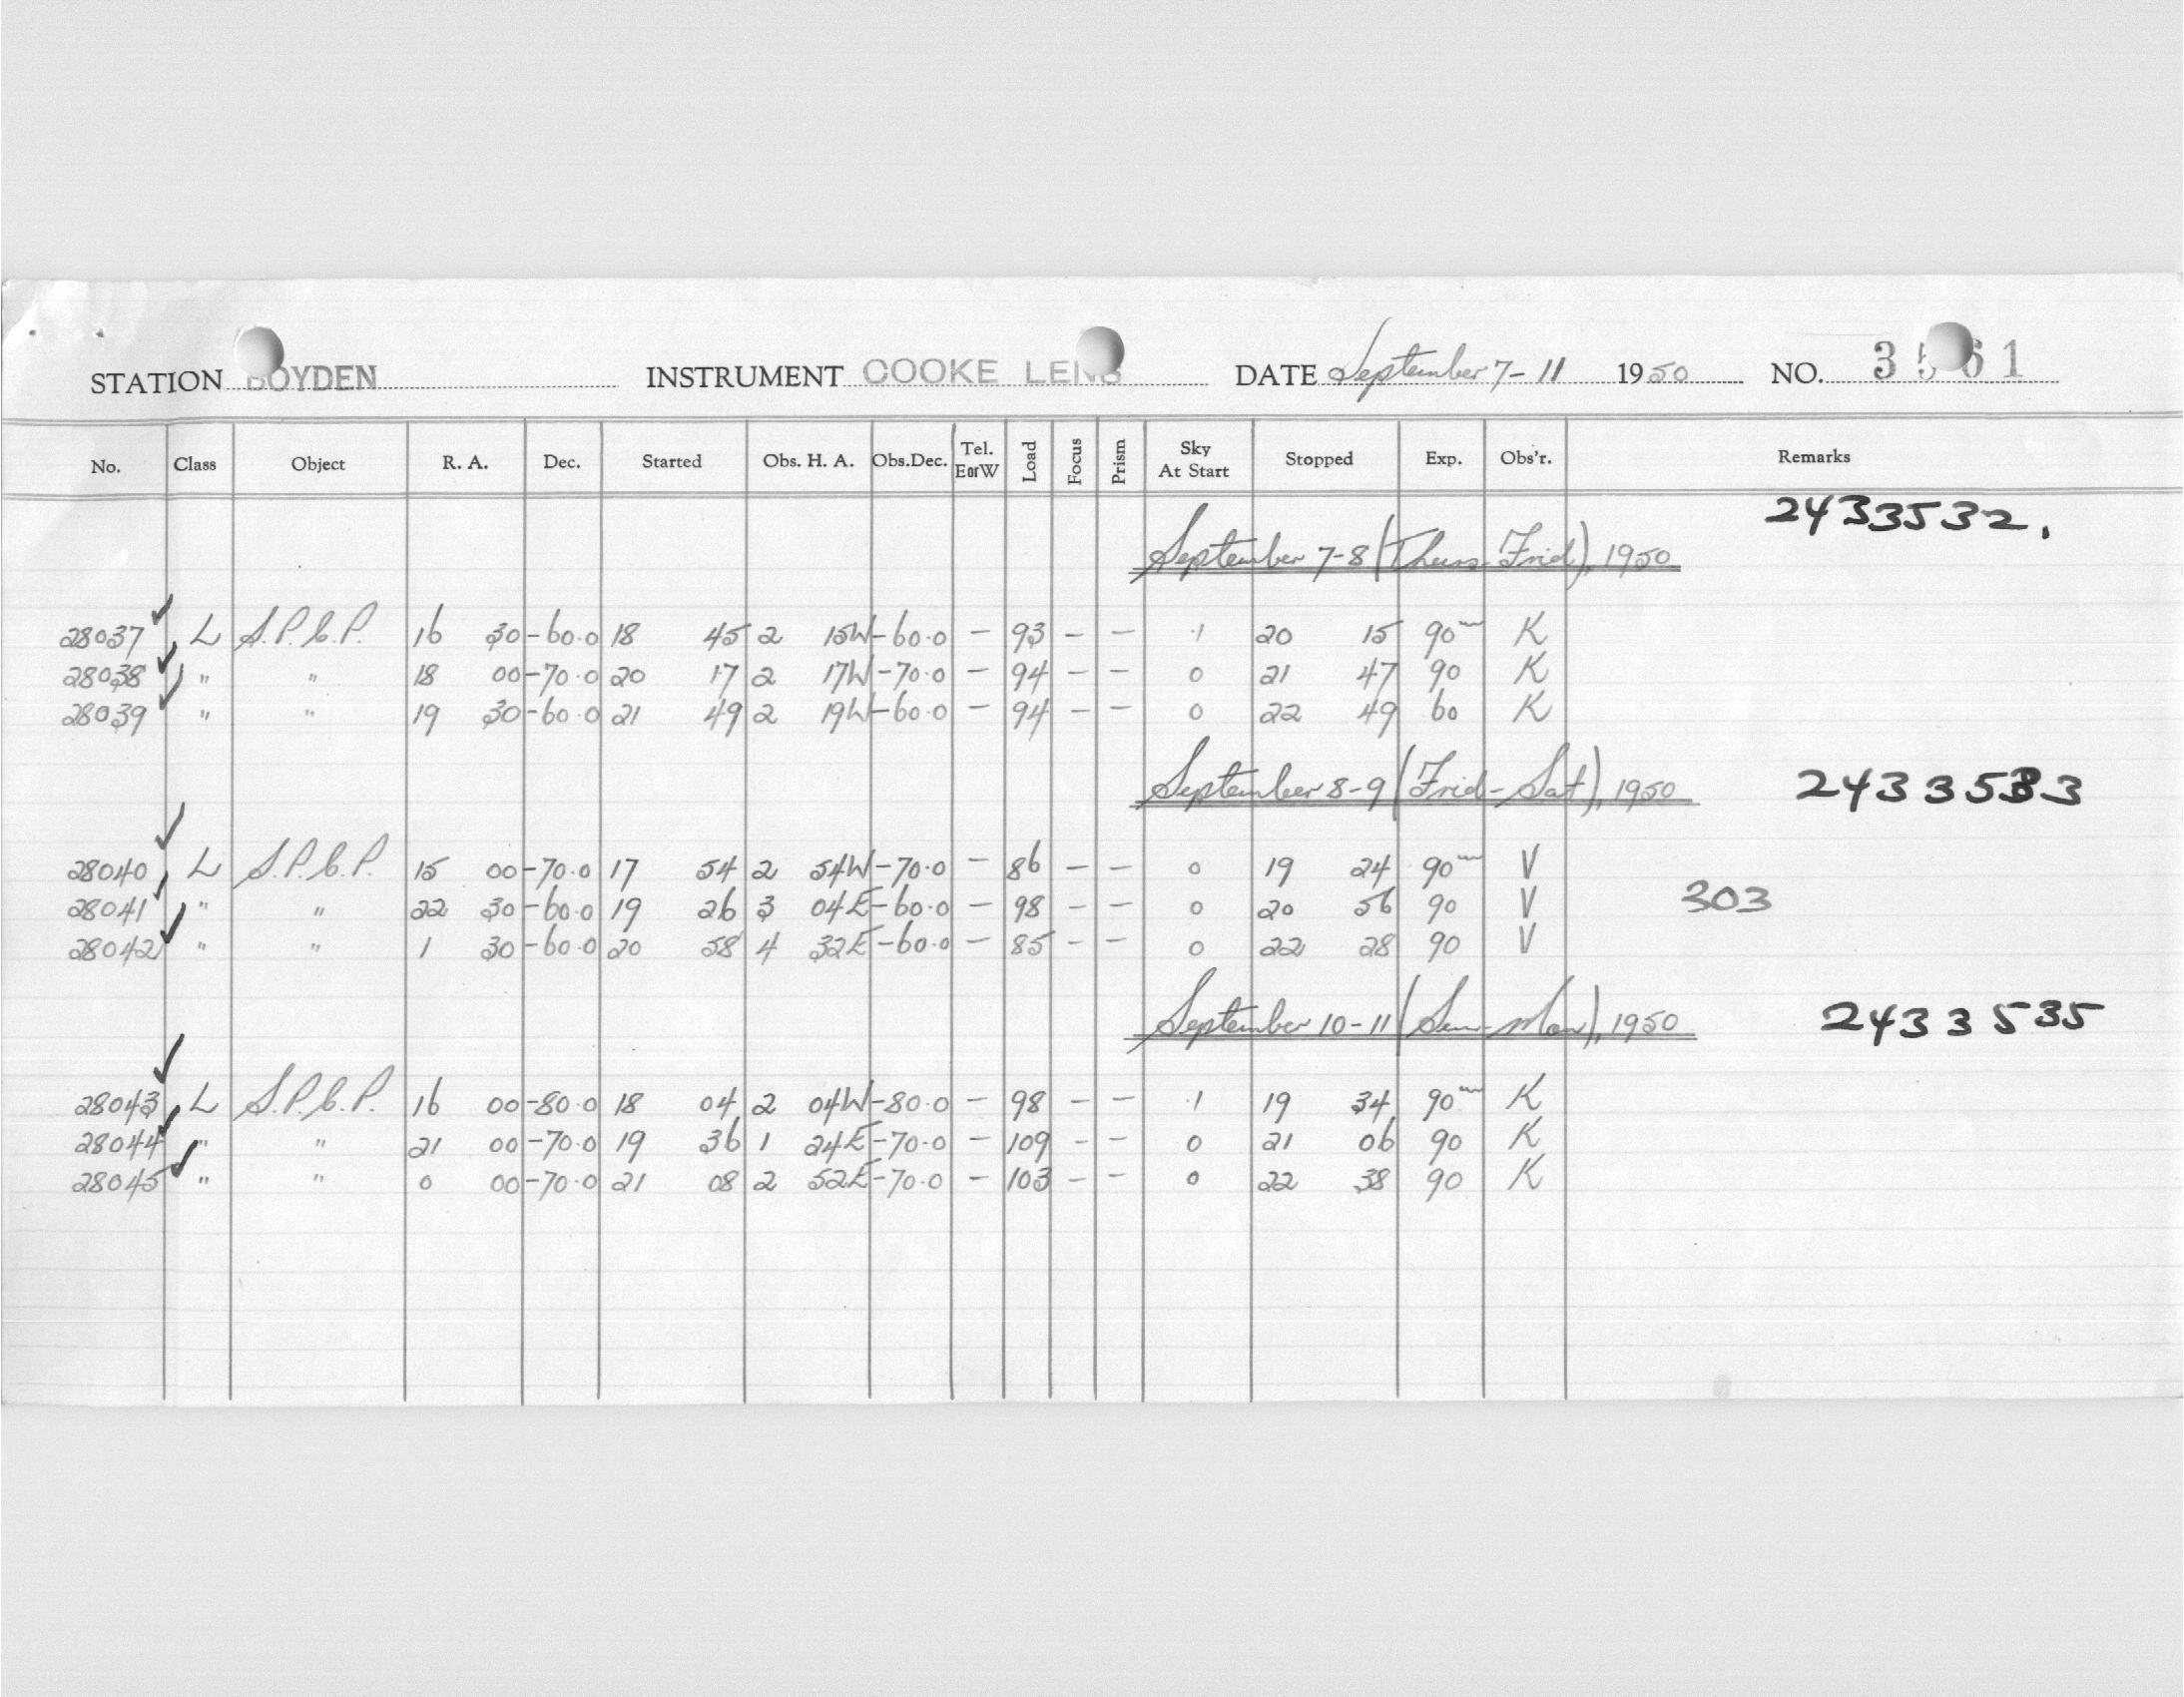 STATION BOYDEN INSTRUMENT COOKE LENS DATE September 7-11 1950 NO. 3561
No. Class Object R. A. Dec. Started Obs. H. A. Obs.Dec. Tel. E or W Load Focus Prism Sky At Start Stopped Exp. Obs'r. Remarks
2433532.
September 7-8 (Thurs-Frid), 1950
28037 L S.P.C.P. 16 30 -60.0 18 45 2 15W -60.0 - 93 - - .1 20 15 90m K
28038 " " 18 00 -70.0 20 17 2 17W -70.0 - 94 - - 0 21 47 90 K
28039 " " 19 30 -60.0 21 49 2 19W -60.0 - 94 - - 0 22 49 60 K
September 8-9 (Frid-Sat), 1950 2433533
28040 L S.P.C.P. 15 00 -70.0 17 54 2 54W -70.0 - 86 - - 0 19 24 90m V
28041 " " 22 30 -60.0 19 26 3 04E -60.0 - 98 - - 0 20 56 90 V 303
28042 " " 1 30 -60.0 20 58 4 32E -60.0 - 85 - - 0 22 28 90 V
September 10-11 (Sun-Mon), 1950 2433535
28043 L S.P.C.P. 16 00 -80.0 18 04 2 04W -80.0 - 98 - - .1 19 34 90m K
28044 " " 21 00 -70.0 19 36 1 24E -70.0 - 109 - - 0 21 06 90 K
28045 " " 0 00 -70.0 21 08 2 52E -70.0 - 103 - - 0 22 38 90 K